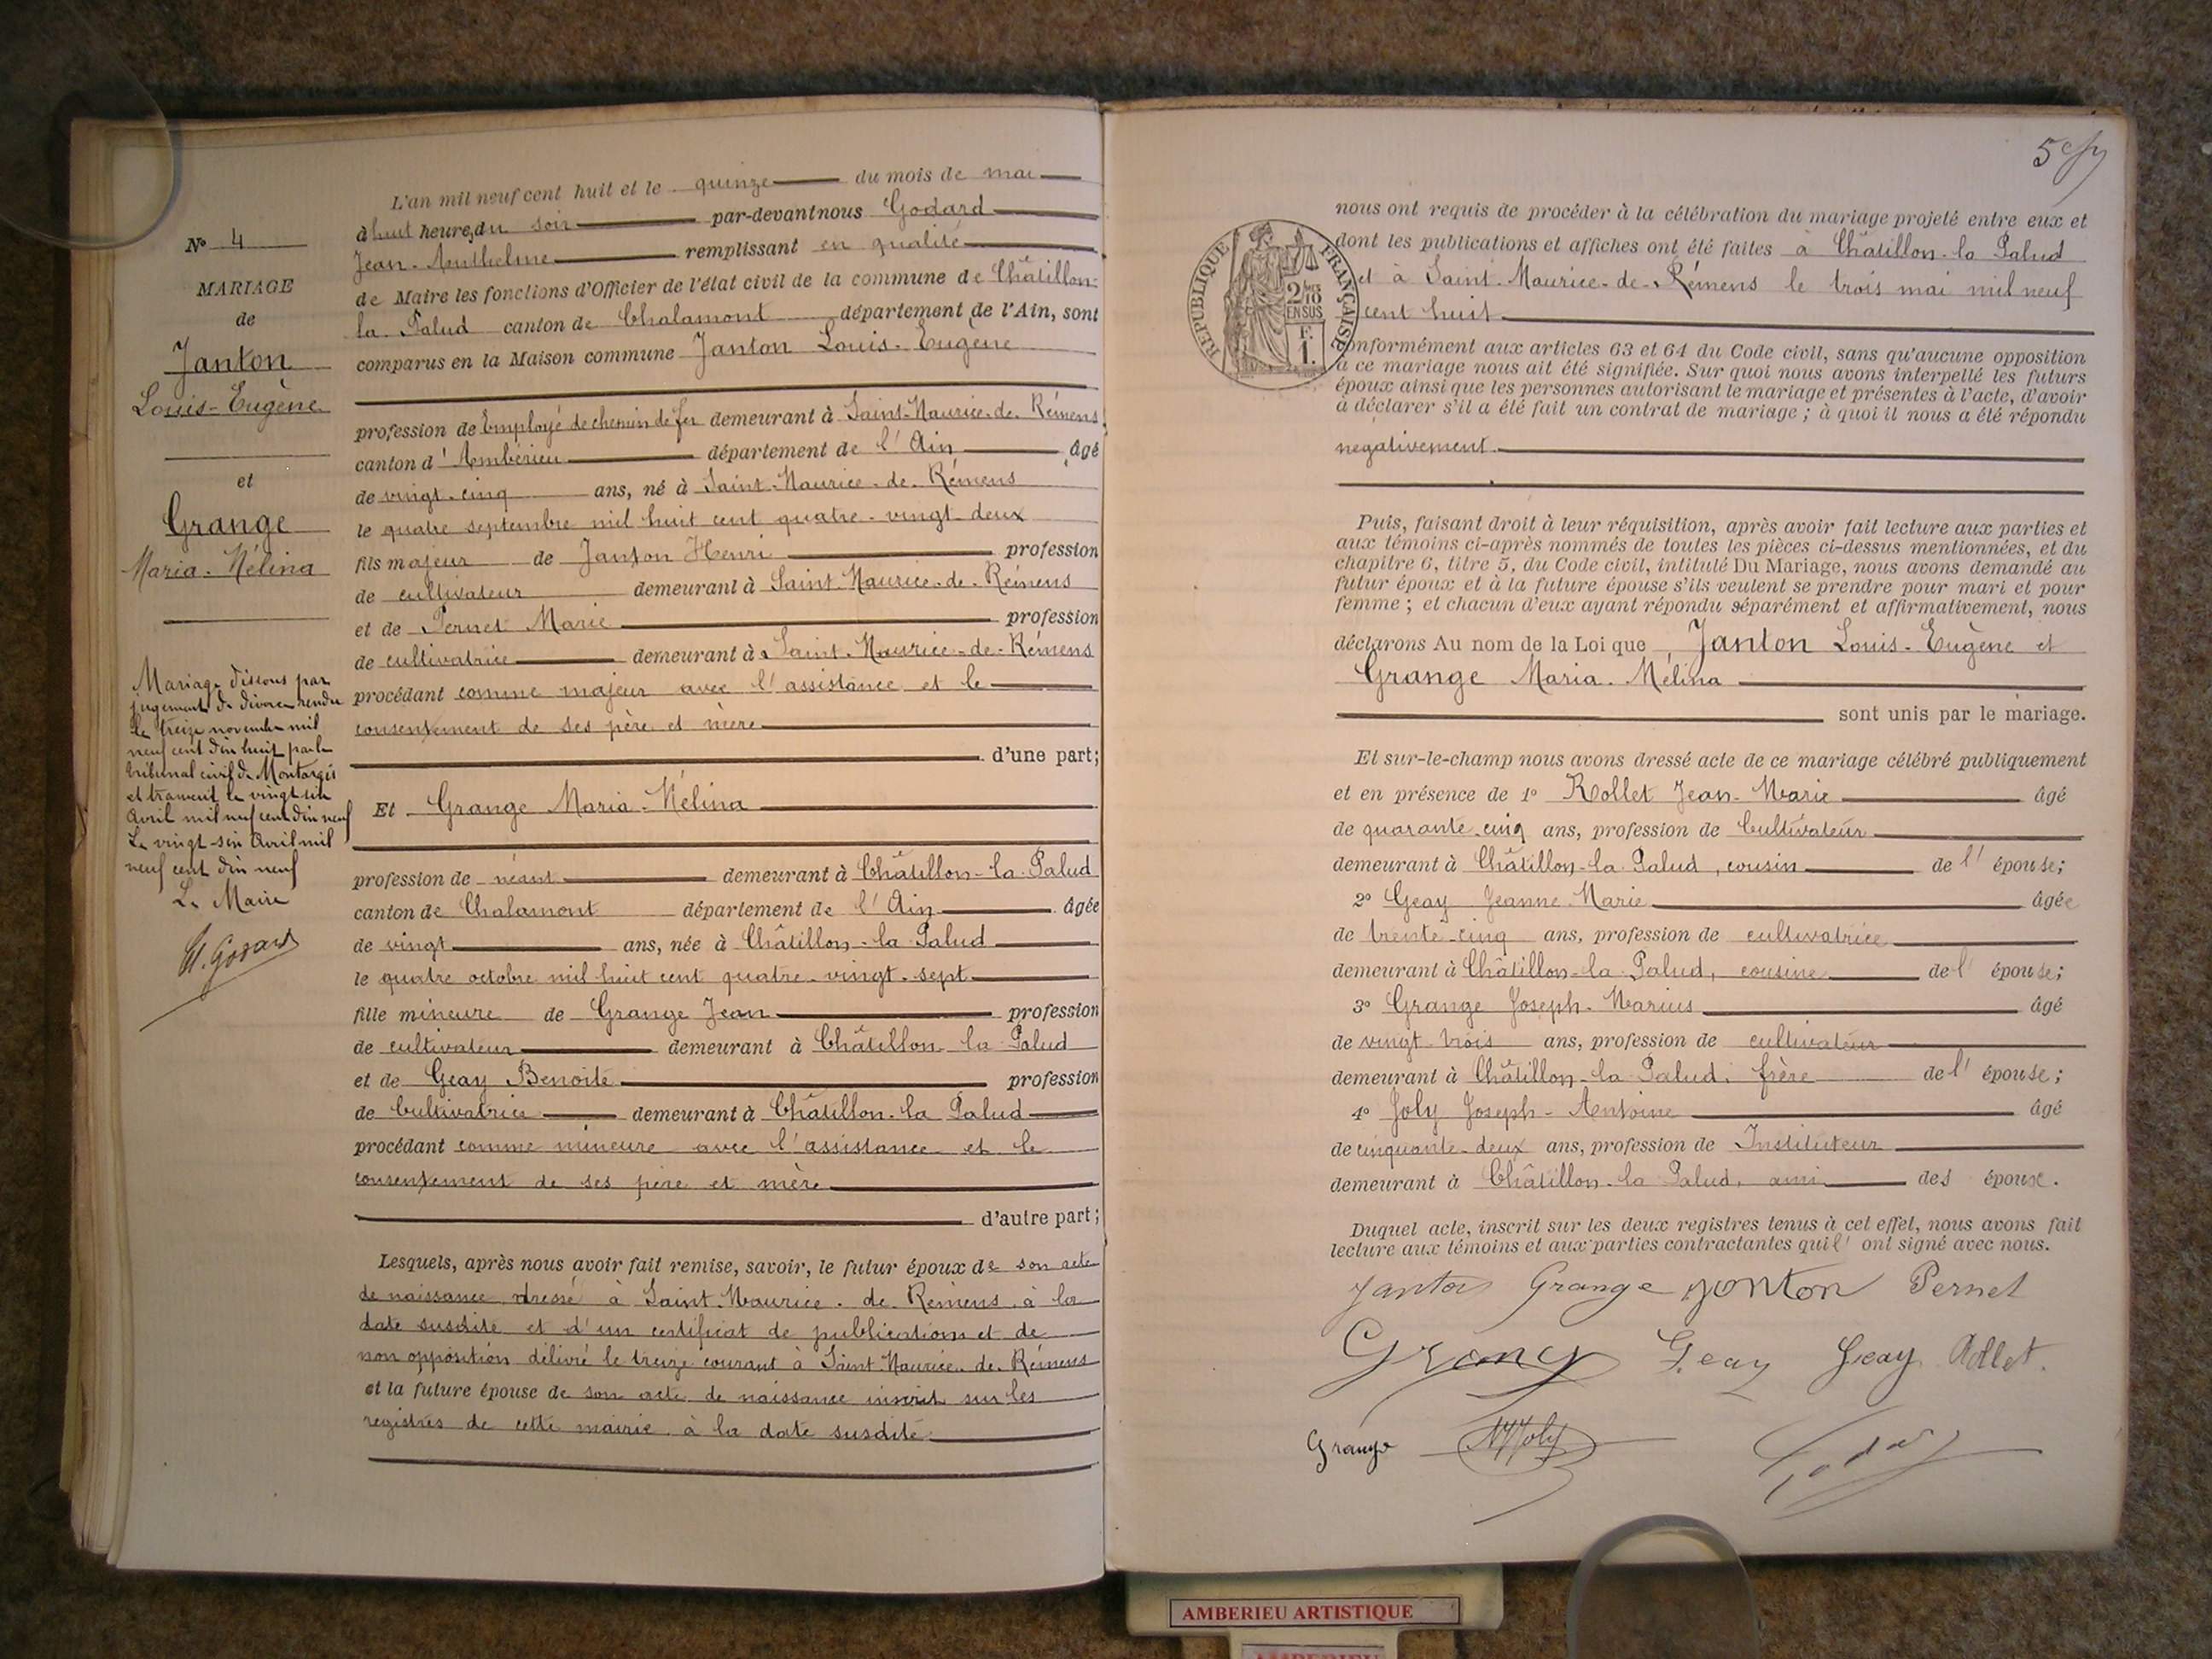 N° 4
MARIAGE
de
Janton
Louis-Eugène
et
Grange
Maria-Mélina
Mariage dissous par
jugement de divorce rendu
le treize novembre mil
neuf cent dix huit par le
tribunal civil de Montargis
et transcrit le vingt six
Avril mil neuf cent dix neuf
Le vingt-six Avril mil
neuf cent dix neuf
Le Maire
Godard
L'an mil neuf cent huit et le quinze du mois de mai
à huit heures du soir par-devant nous Godard
Jean-Anthelme remplissant en qualité
de Maire les fonctions d'Officier de l'état civil de la commune de Châtillon-
la Palud canton de Chalamont département de l'Ain, sont
comparus en la Maison commune Janton Louis-Eugène
profession de Employé de chemin de fer demeurant à Saint-Maurice-de-Rémens
canton d'Ambérieu département de l'Ain âgé
de vingt-cinq ans, né à Saint-Maurice-de-Rémens
le quatre septembre mil huit cent quatre-vingt-deux
fils majeur de Janton Henri profession
de cultivateur demeurant à Saint-Maurice-de-Rémens
et de Pernet Marie profession
de cultivatrice demeurant à Saint-Maurice-de-Rémens
procédant comme majeur avec l'assistance et le
consentement de ses père et mère
d'une part;
Et Grange Maria-Mélina
profession de néant demeurant à Châtillon-la-Palud
canton de Chalamont département de l'Ain âgée
de vingt ans, née à Châtillon-la-Palud
le quatre octobre mil huit cent quatre-vingt-sept
fille mineure de Grange Jean profession
de cultivateur demeurant à Châtillon-la-Palud
et de Geay Benoite profession
de Cultivatrice demeurant à Châtillon-la-Palud
procédant comme mineure avec l'assistance et le
consentement de ses père et mère
d'autre part;
Lesquels, après nous avoir fait remise, savoir, le futur époux de son acte
de naissance dressé à Saint-Maurice-de-Rémens à la
date susdite et d'un certificat de publications et de
non opposition délivré le treize courant à Saint-Maurice-de-Rémens
et la future épouse de son acte de naissance inscrit sur les
registres de cette mairie à la date susdite
5e
RÉPUBLIQUE FRANÇAISE
2/10
EN SUS
F.
1.
nous ont requis de procéder à la célébration du mariage projeté entre eux et
dont les publications et affiches ont été faites à Châtillon-la-Palud
et à Saint-Maurice-de-Rémens le trois mai mil neuf
cent huit
conformément aux articles 63 et 64 du Code civil, sans qu'aucune opposition
à ce mariage nous ait été signifiée. Sur quoi nous avons interpellé les futurs
époux ainsi que les personnes autorisant le mariage et présentes à l'acte, d'avoir
à déclarer s'il a été fait un contrat de mariage ; à quoi il nous a été répondu
negativement.
Puis, faisant droit à leur réquisition, après avoir fait lecture aux parties et
aux témoins ci-après nommés de toutes les pièces ci-dessus mentionnées, et du
chapitre 6, titre 5, du Code civil, intitulé Du Mariage, nous avons demandé au
futur époux et à la future épouse s'ils veulent se prendre pour mari et pour
femme ; et chacun d'eux ayant répondu séparément et affirmativement, nous
déclarons Au nom de la Loi que Janton Louis-Eugène et
Grange Maria-Mélina
sont unis par le mariage.
Et sur-le-champ nous avons dressé acte de ce mariage célébré publiquement
et en présence de 1° Rollet Jean-Marie âgé
de quarante-cinq ans, profession de Cultivateur
demeurant à Châtillon-la-Palud, cousin de l'épouse;
2° Geay Jeanne-Marie âgée
de trente-cinq ans, profession de cultivatrice
demeurant à Châtillon-la-Palud, cousine de l'épouse;
3° Grange Joseph-Marius âgé
de vingt-trois ans, profession de cultivateur
demeurant à Châtillon-la-Palud, frère de l'épouse;
4° Joly Joseph-Antoine âgé
de cinquante-deux ans, profession de Instituteur
demeurant à Châtillon-la-Palud, ami des époux.
Duquel acte, inscrit sur les deux registres tenus à cet effet, nous avons fait
lecture aux témoins et aux parties contractantes qui l'ont signé avec nous.
Janton Grange Janton Pernet
Grange Geay Geay Rollet.
Grange Joly Godard
AMBERIEU ARTISTIQUE
AMBERIEU